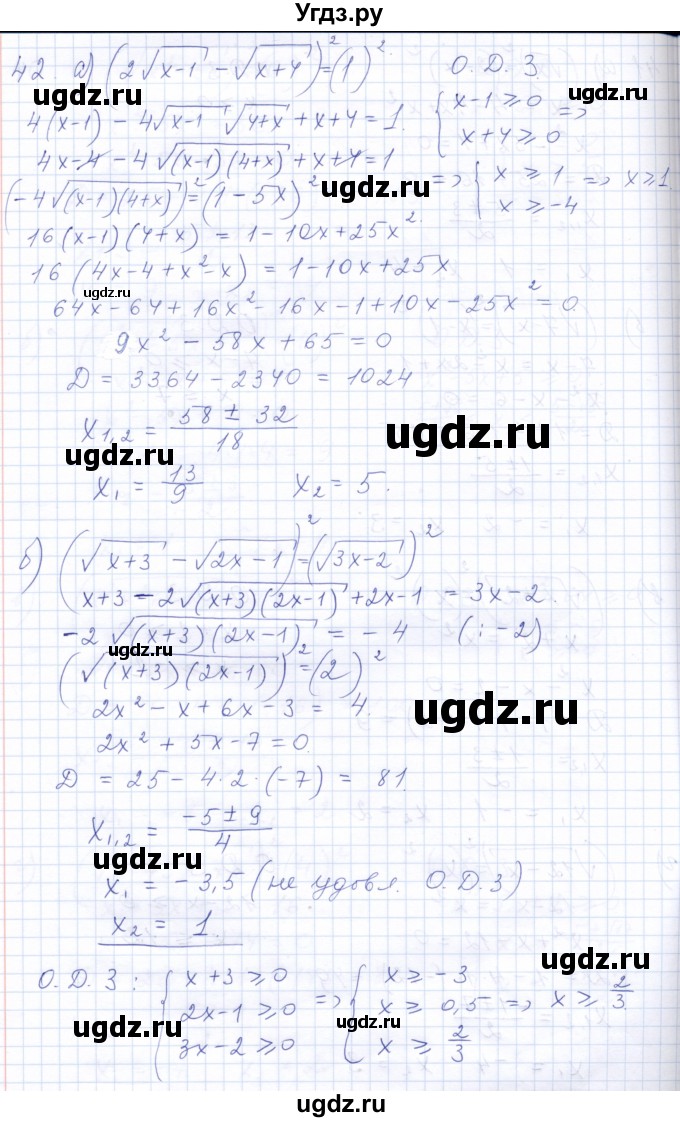 Угдз.ру
42. а) (2√x-1 - √x+4)² = (1)²   О.Д.З.
4(x-1) - 4√x-1 √4+x + x+4 = 1.   { x-1 ≥ 0 =>
x+4 ≥ 0
4x-4 - 4√(x-1)(4+x) + x+4 = 1
ugdz.ru
(-4√(x-1)(4+x))² = (1-5x)²   => { x ≥ 1 => x ≥ 1.
x ≥ -4
ugdz.ru
16(x-1)(4+x) = 1-10x+25x².
16(4x-4+x²-x) = 1-10x+25x
ugdz.ru
64x-64+16x²-16x-1+10x-25x² = 0
9x² - 58x + 65 = 0
D = 3364 - 2340 = 1024
x1,2 = 58 ± 32 / 18
ugdz.ru
ugdz.ru
x1 = 13/9   x2 = 5.
б) (√x+3 - √2x-1)² = (√3x-2)²
x+3 - 2√(x+3)(2x-1) + 2x-1 = 3x-2
-2√(x+3)(2x-1) = -4   (: -2)
ugdz.ru
ugdz.ru
(√(x+3)(2x-1))² = (2)²
2x² - x + 6x - 3 = 4.
ugdz.ru
2x² + 5x - 7 = 0
D = 25 - 4·2·(-7) = 81.
x1,2 = -5 ± 9 / 4
ugdz.ru
ugdz.ru
x1 = -3,5 (не удовл. О.Д.З)
x2 = 1.
ugdz.ru
О.Д.З: { x+3 ≥ 0 => { x ≥ -3
2x-1 ≥ 0   x ≥ 0,5 => x ≥ 2/3.
ugdz.ru
ugdz.ru
3x-2 ≥ 0   x ≥ 2/3
ugdz.ru